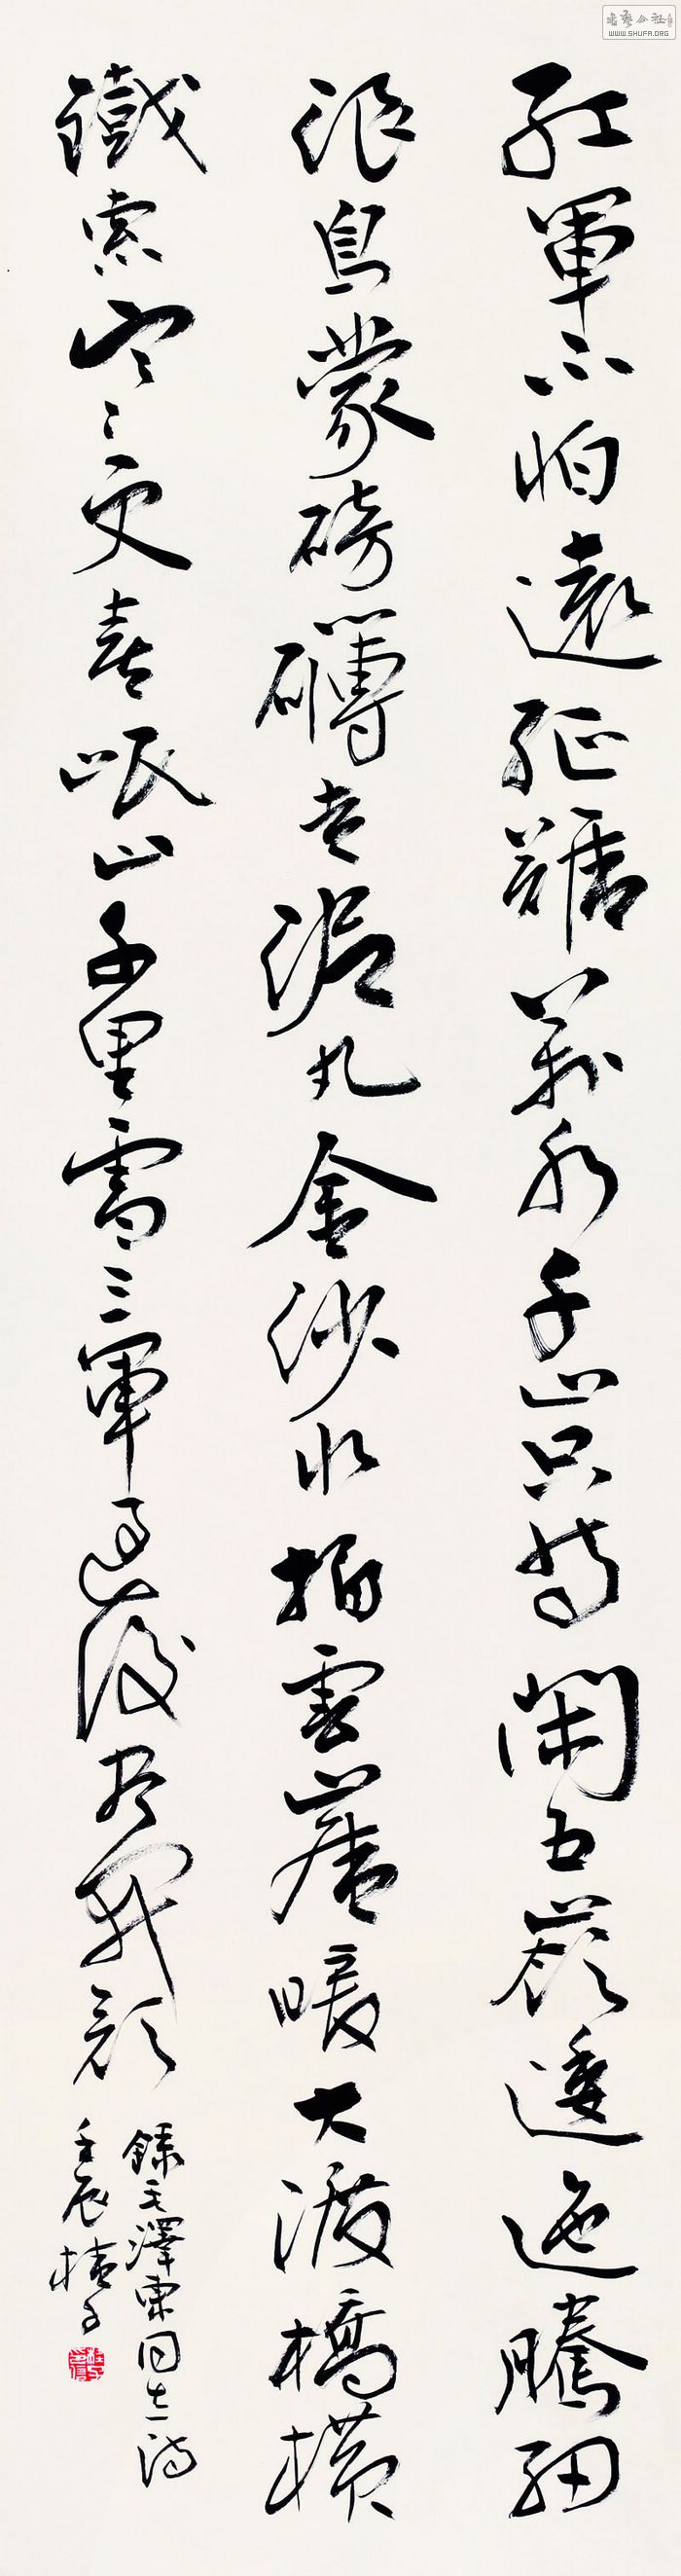 紅軍不怕遠征難萬水千山只等閑五嶺逶迤騰細
浪烏蒙磅礴走泥丸金沙水拍雲崖暖大渡橋橫
鐵索寒更喜岷山千里雪三軍過後盡開顏
錄毛澤東同志詩
壬辰
書藝公社
WWW.SHUFA.ORG